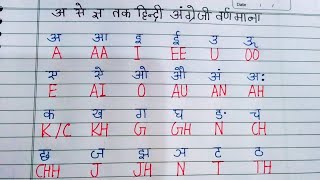 अ से ज्ञ तक हिन्दी अंग्रेजी वर्णमाला
अ आ इ ई उ ऊ
A AA I EE U OO
ए ऐ ओ औ अं अः
E AI O AU AN AH
क ख ग घ ङ च
K/C KH G GH N CH
छ ज झ ञ ट ठ
CHH J JH N T TH